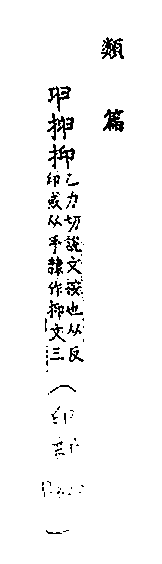 類篇
抑
乙力切說文按也从反
印或从手隸作抑文三
(印部
)